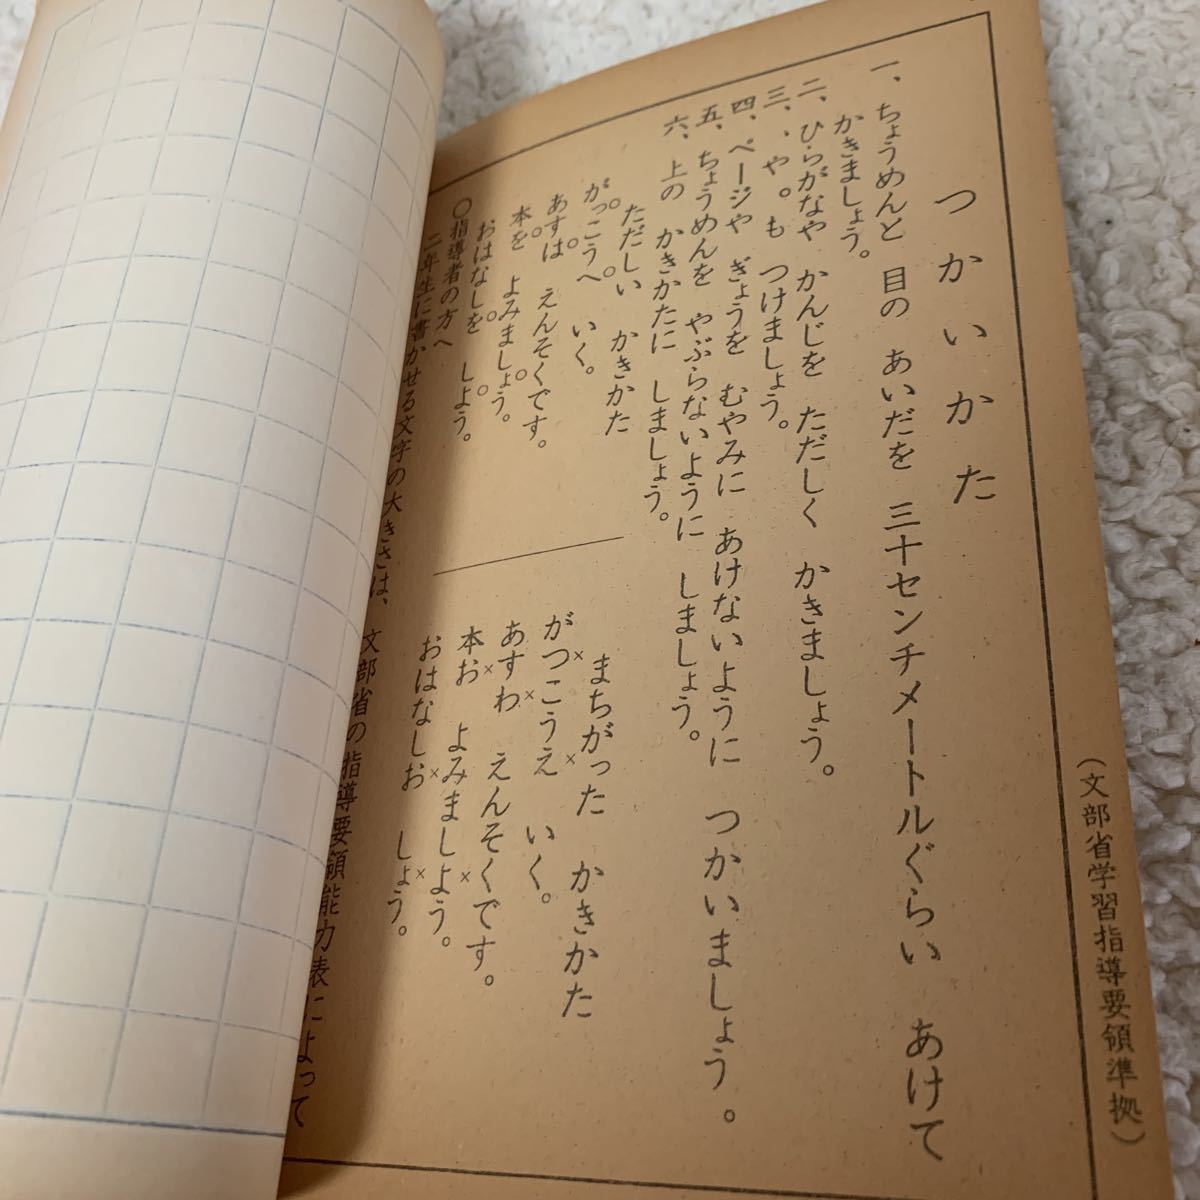 （文部省学習指導要領準拠）
つかいかた
一、ちょうめんと　目の　あいだを　三十センチメートルぐらい　あけて
かきましょう。
二、ひらがなや　かんじを　ただしく　かきましょう。
三、、や。も　つけましょう。
四、ページや　ぎょうを　むやみに　あけないように　つかいましょう。
五、ちょうめんを　やぶらないように　しましょう。
六、上の　かきかたに　しましょう。
ただしい　かきかた
がっこうへ　いく。
あすは　えんそくです。
本を　よみましょう。
おはなしを　しよう。
まちがった　かきかた
がつこうえ　いく。
あすわ　えんそくです。
本お　よみましよう。
おはなしお　しょう。
○指導者の方へ
二年生に書かせる文字の大きさは、文部省の指導要領能力表によって